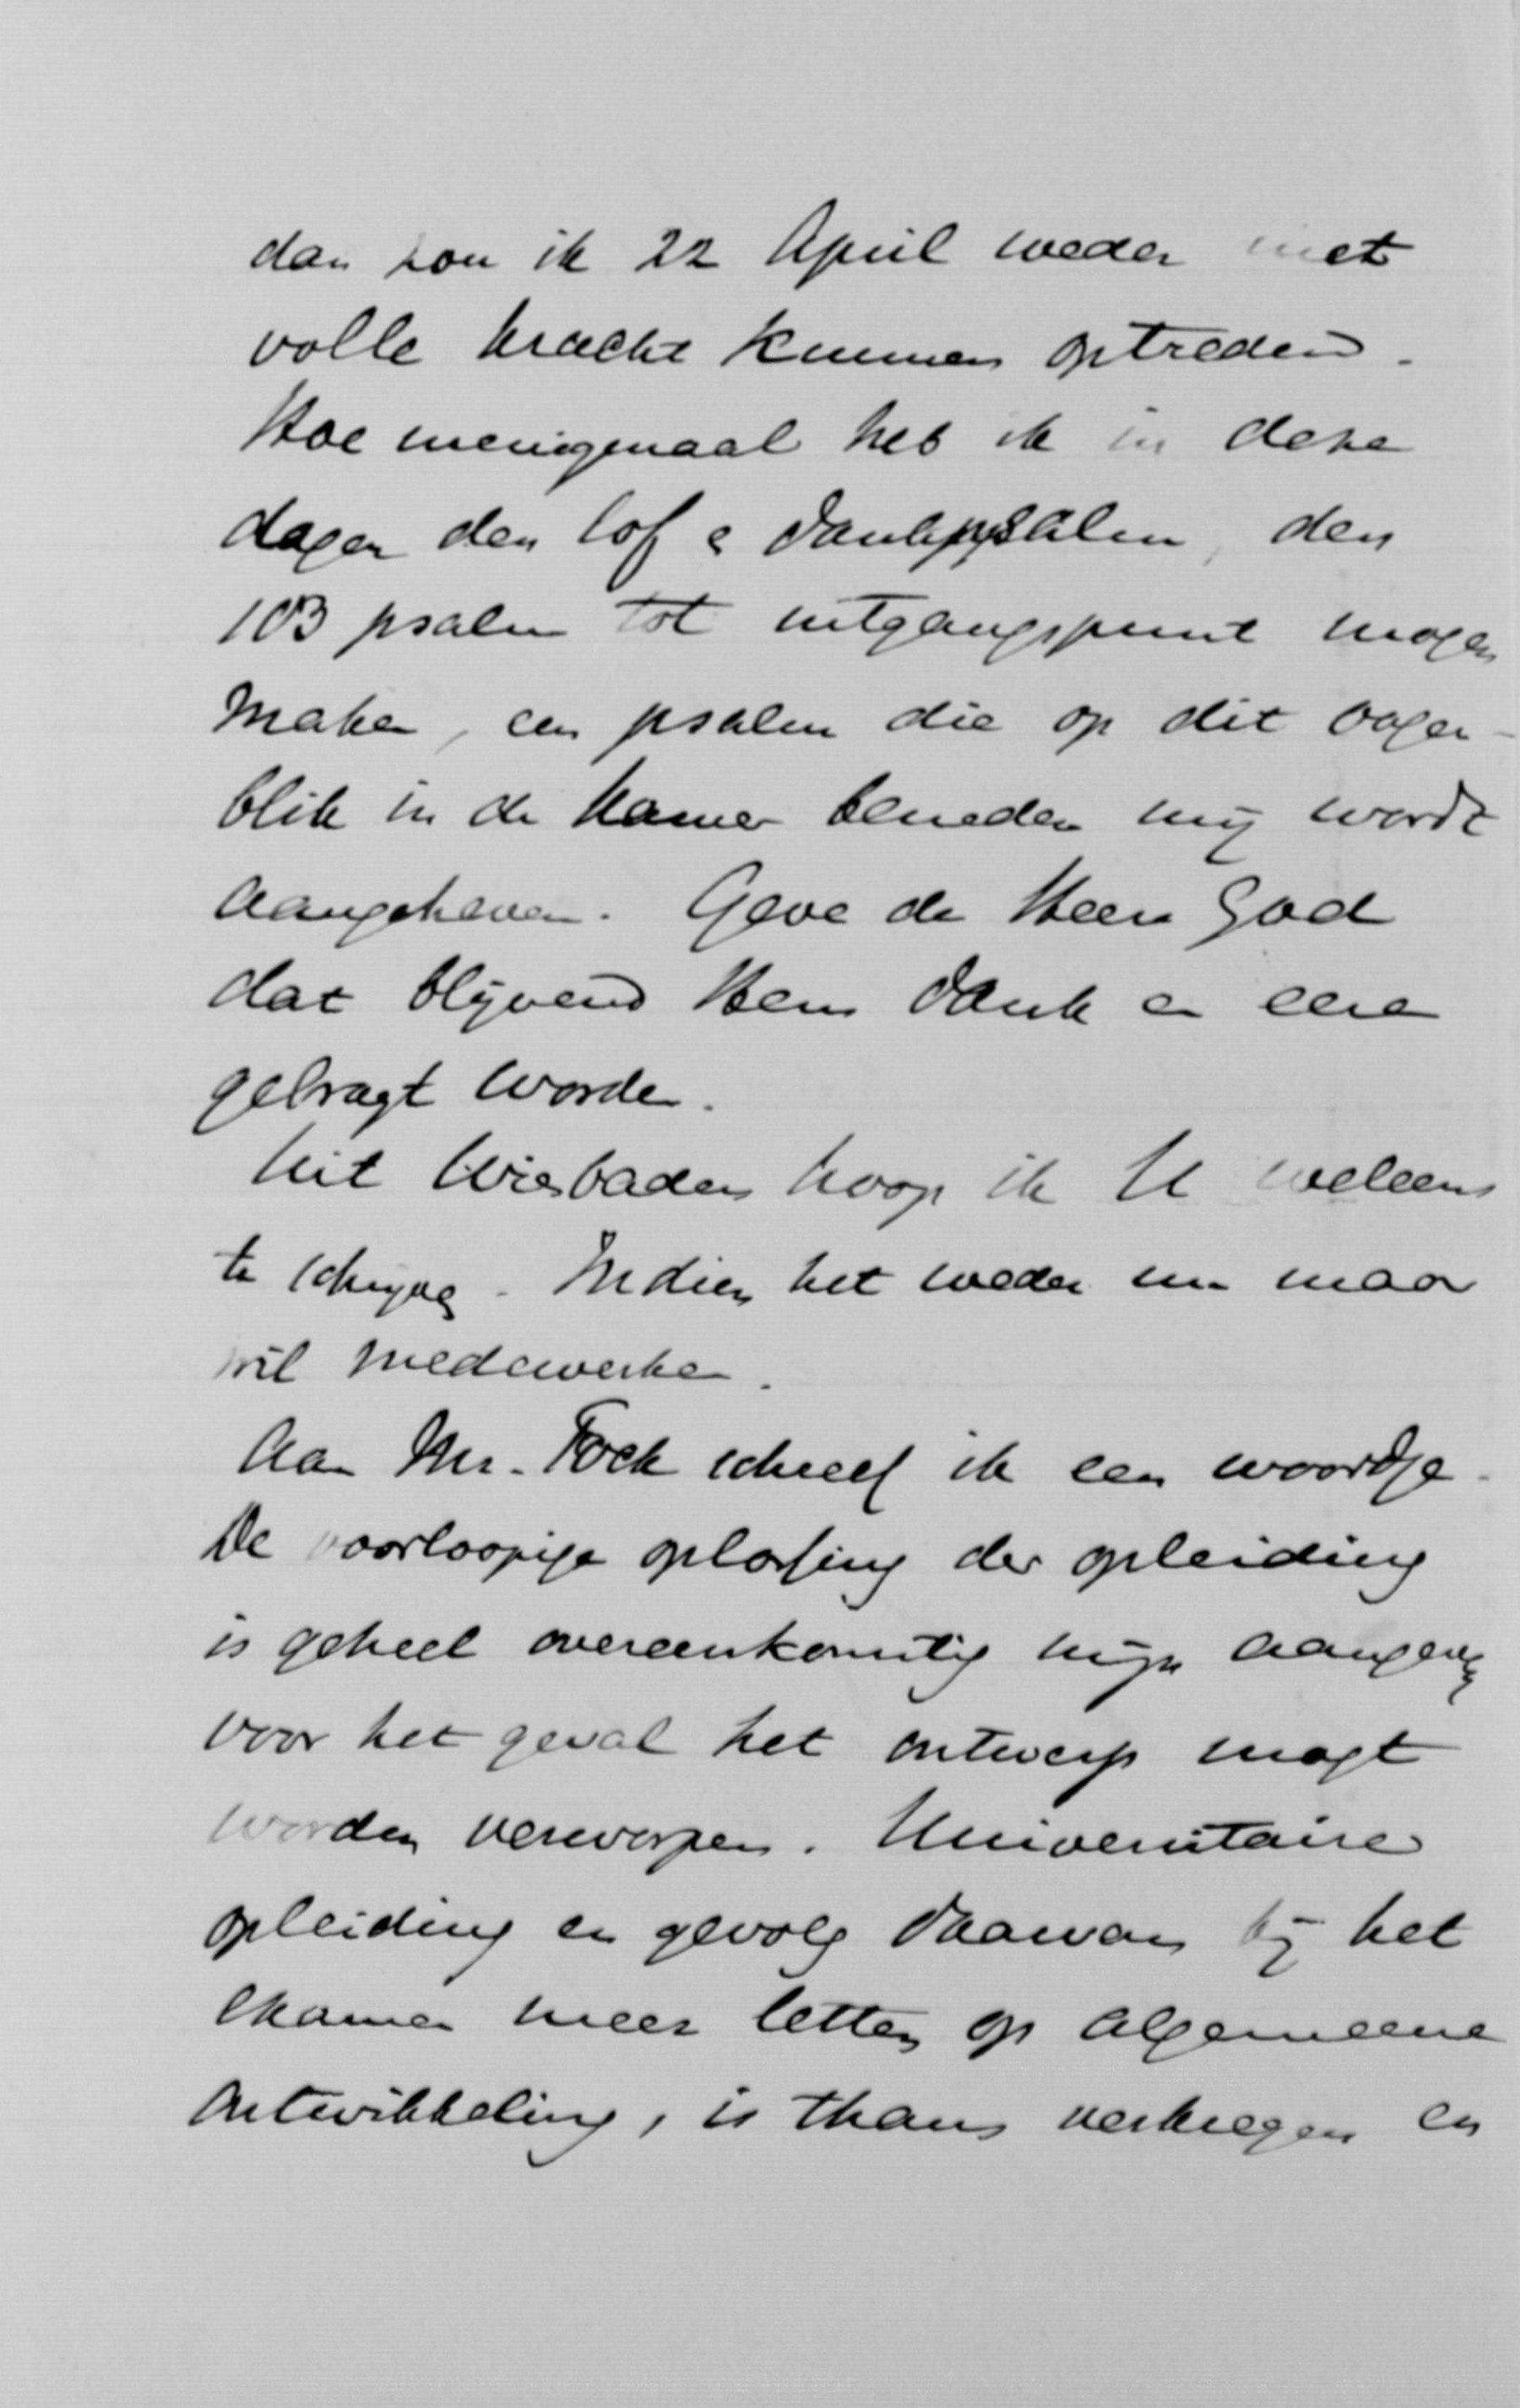 dan zou ik 22 April weder met
volle kracht kunnen optreden.
Hoe menigmaal heb ik in deze
dagen den lof & dankpsalm, den
103 psalm tot uitgangspunt mogen
maken, een psalm die op dit oogen-
blik in de kamer beneden mij wordt
aangeheven. Geve de Heere God
dat blijvend Hem dank en eere
gebragt worde.
Uit Wiesbaden hoop ik U weleens
te schrijven. Indien het weder nu maar
wil medewerken.
Aan Mr. Fock schreef ik een woordje.
De voorloopige oplossing der opleiding
is geheel overeenkomstig mijn aangeven
voor het geval het ontwerp mogt
worden verworpen. Universitaire
opleiding en gevolg daarvan bij het
examen meer letten op algemeene
ontwikkeling, is thans verkregen en